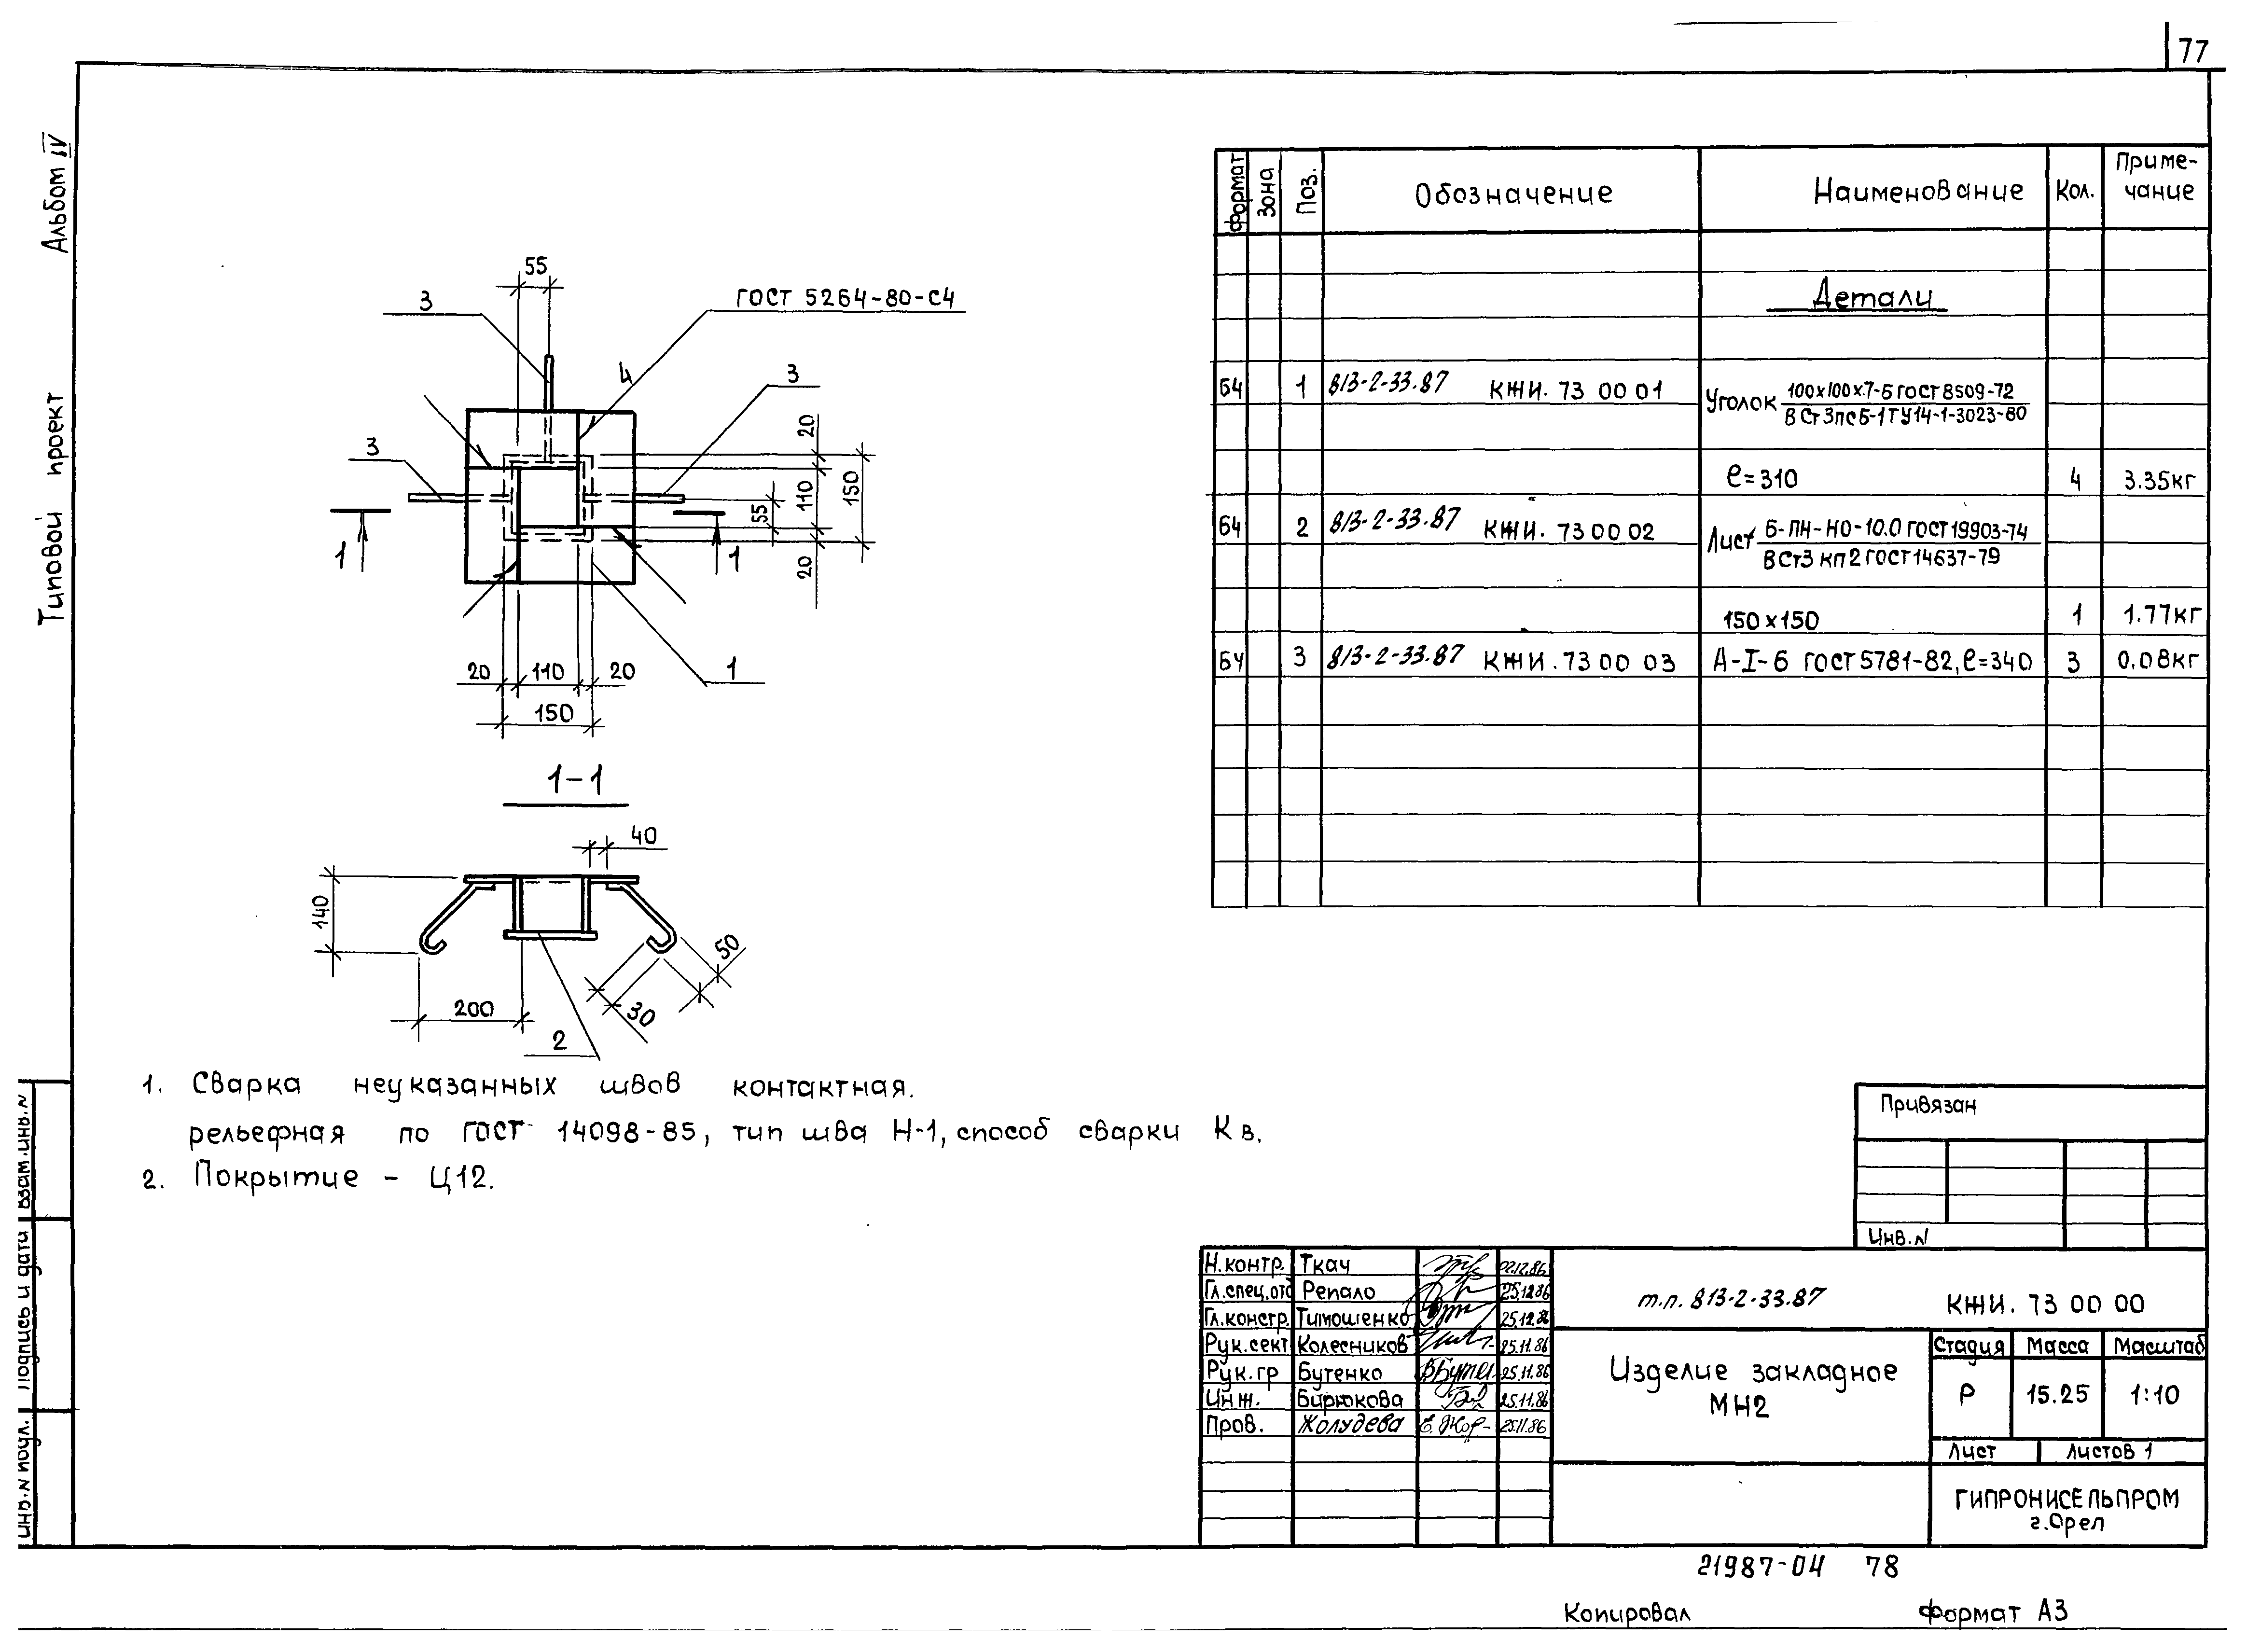 77
Альбом IV
Типовой проект
55
3
ГОСТ 5264-80-С4
4
3
3
20
110
150
55
20
1
1
20 110 20
150
1
1-1
40
140
200
50
30
2
1. Сварка неуказанных швов контактная.
рельефная по ГОСТ 14098-85, тип шва Н-1, способ сварки Кв.
2. Покрытие - Ц12.
Формат Зона Поз. Обозначение Наименование Кол. Приме-
чание
Детали
Б4 1 813-2-33.87 КЖИ. 73 00 01 Уголок 100х100х7-Б ГОСТ 8509-72
ВСт3пс6-1 ТУ14-1-3023-80
ℓ=310 4 3.35кг
Б4 2 813-2-33.87 КЖИ. 73 00 02 Лист Б-ПН-НО-10.0 ГОСТ 19903-74
ВСт3 кп2 ГОСТ 14637-79
150х150 1 1.77кг
Б4 3 813-2-33.87 КЖИ. 73 00 03 А-I-6 ГОСТ 5781-82, ℓ=340 3 0,08кг
Привязан
Инв.N
Н.контр. Ткач 02.12.86
Гл.спец.отд Репало 25.12.86
Гл.констр. Тимошенко 25.12.86
Рук.сект. Колесников 25.11.86
Рук.гр Бутенко 25.11.86
Инж. Бирюкова 25.11.86
Пров. Жолудева 25.11.86
т.п. 813-2-33.87 КЖИ. 73 00 00
Изделие закладное
МН2
Стадия Масса Масштаб
Р 15.25 1:10
Лист Листов 1
ГИПРОНИСЕЛЬПРОМ
г.Орел
Инв.N подл. Подпись и дата Взам.инв.N
21987-04 78
Копировал Формат А3